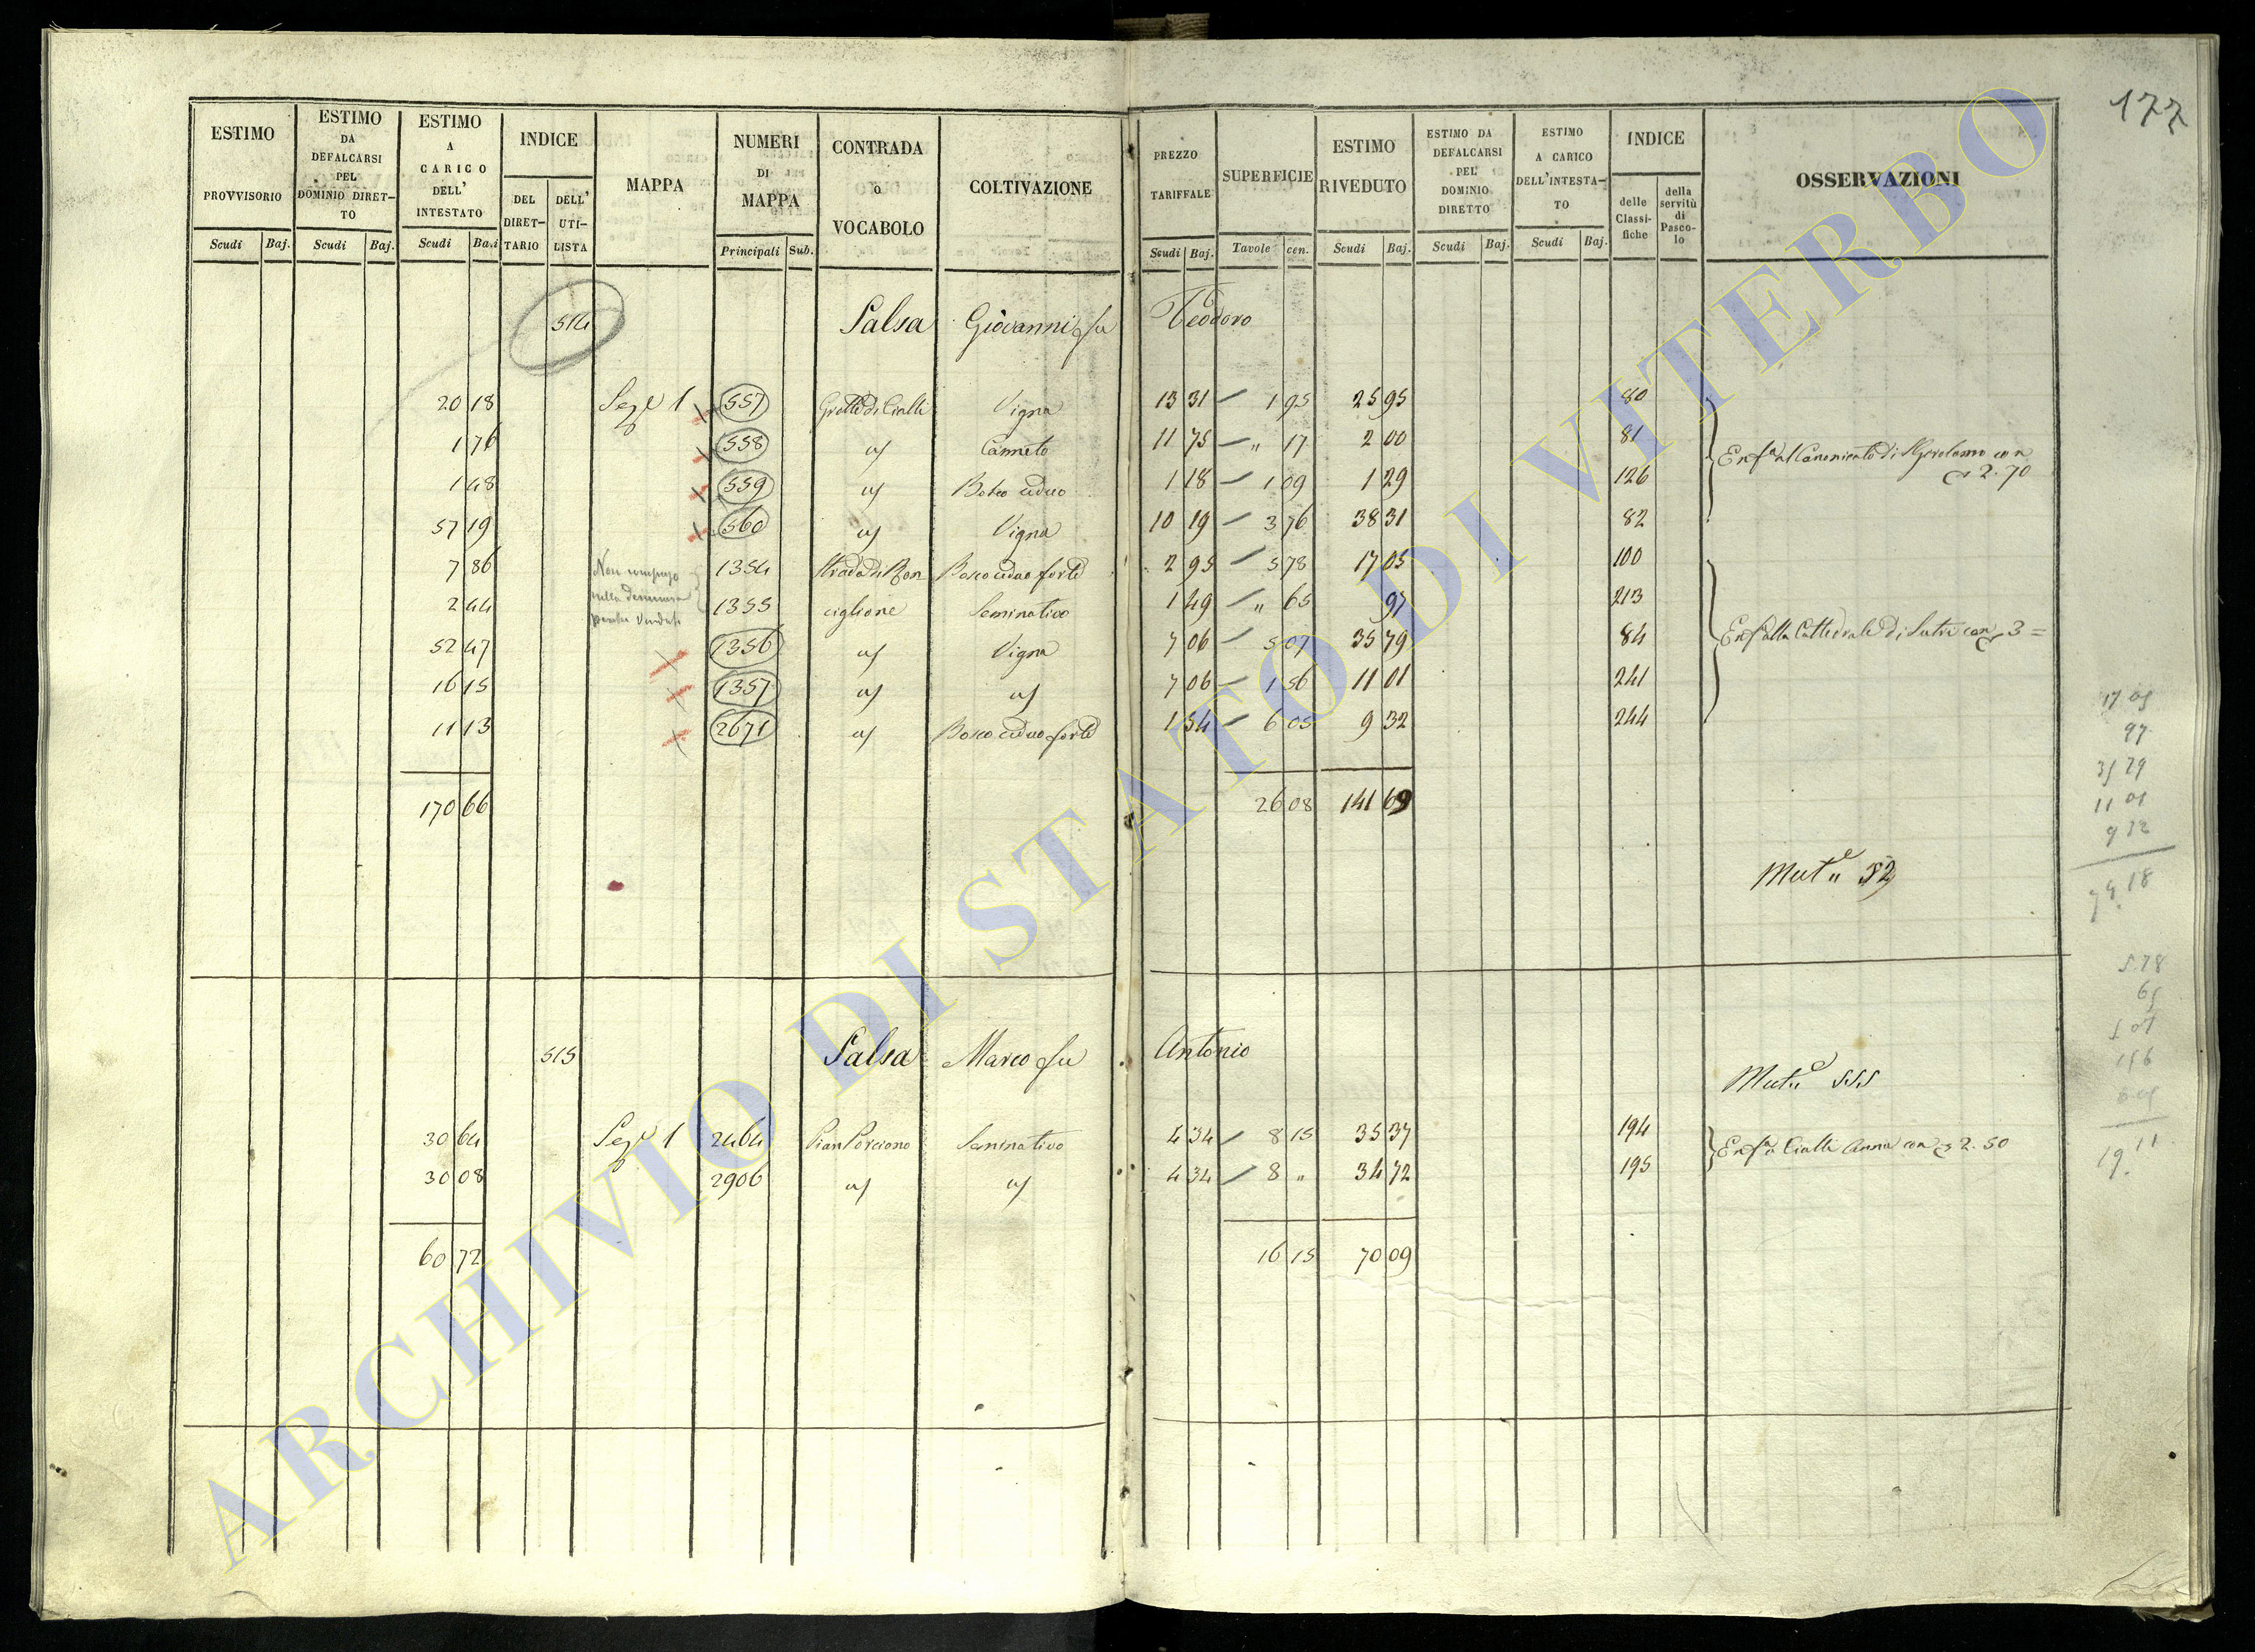 177
ESTIMO PROVVISORIO Scudi Baj.
ESTIMO DA DEFALCARSI PEL DOMINIO DIRET-TO Scudi Baj.
ESTIMO A CARICO DELL' INTESTATO Scudi Baj.
INDICE DEL DIRET-TARIO DELL' UTI-LISTA
MAPPA
NUMERI DI MAPPA Principali Sub.
CONTRADA o VOCABOLO
COLTIVAZIONE
PREZZO TARIFFALE Scudi Baj.
SUPERFICIE Tavole cen.
ESTIMO RIVEDUTO Scudi Baj.
ESTIMO DA DEFALCARSI PEL DOMINIO DIRETTO Scudi Baj.
ESTIMO A CARICO DELL'INTESTA-TO Scudi Baj.
INDICE delle Classi-fiche della servitù di Pasco-lo
OSSERVAZIONI
514 Salsa Giovanni fu Teodoro
20 18 Sez.e 1 557 Grotte di Cialli Vigna 13 31 1 95 25 95 80
1 76 558 " Canneto 11 75 " 17 2 00 81
1 48 559 " Bosco ceduo 1 18 1 09 1 29 126
Enf.a al Canonicato di S. Gerolamo con 2.70
57 19 560 " Vigna 10 19 3 76 38 31 82
7 86 1354 Strada di Ron Bosco ceduo forte 2 95 5 78 17 05 100
Non compreso
nella
perché venduto
2 44 1355 ciglione Seminativo 1 49 " 65 97 213
52 47 1356 " Vigna 7 06 5 07 35 79 84
Enf. alla Cattedrale di Sutri con 3 =
16 15 1357 " " 7 06 1 56 11 01 241
11 13 2671 " Bosco ceduo forte 1 54 6 05 9 32 244
170 66 26 08 141 69
Mut.e 52
17 05
97
35 79
11 01
9 32
74.18
5.78
65
5 07
1 56
6 05
19.11
515 Salsa Marco fu Antonio
Mut.e 555
30 64 Sez.e 1 2464 Pian Porciano Seminativo 4 34 8 15 35 37 194
Enf.a a Cialli Anna con 2.50
30 08 2906 " " 4 34 8 " 34 72 195
60 72 16 15 70 09
ARCHIVIO DI STATO DI VITERBO